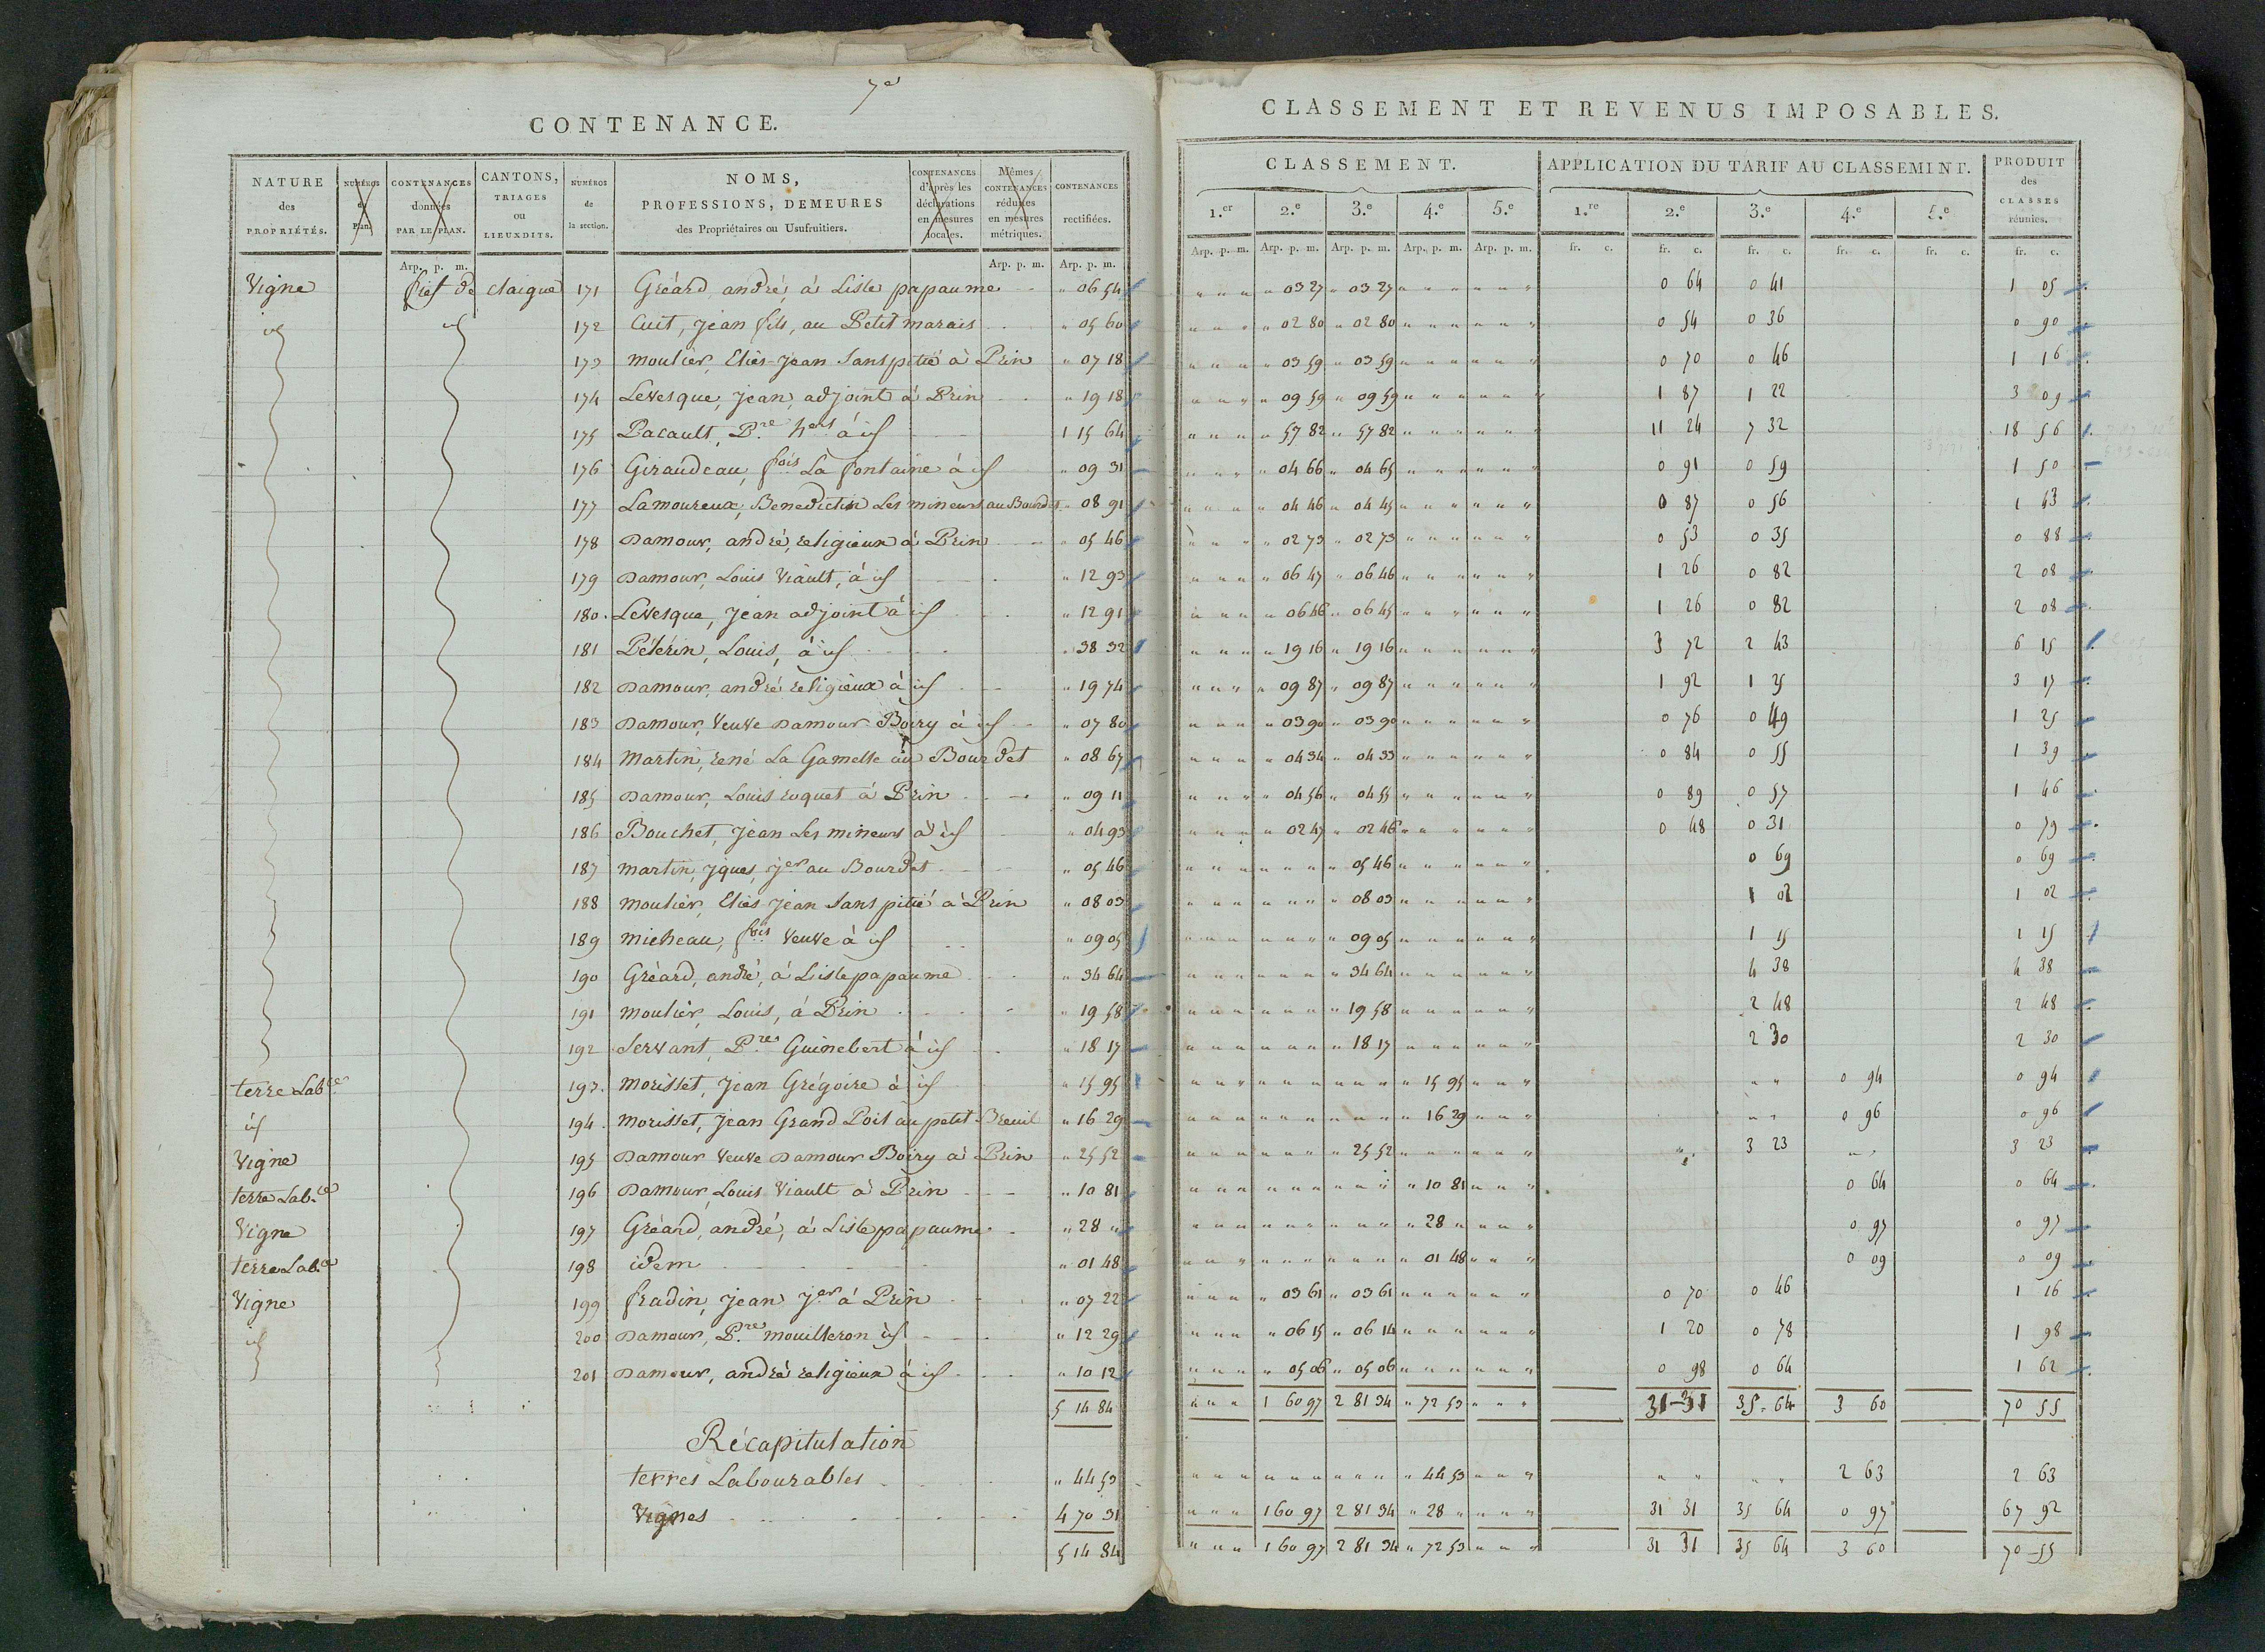 7e
CONTENANCE.
NATURE des PROPRIÉTÉS.
NUMÉROS du Plan.
CONTENANCES données PAR LE PLAN.
CANTONS, TRIAGES ou LIEUXDITS.
NUMÉROS de la section.
NOMS, PROFESSIONS, DEMEURES des Propriétaires ou Usufruitiers.
CONTENANCES d'après les déclarations en mesures locales.
Mêmes CONTENANCES réduites en mesures métriques.
CONTENANCES rectifiées.
Arp. p. m. Arp. p. m. Arp. p. m.
Vigne fief de claigue 171 Gréard, andré, à Lisle papaume " 06 54
id id 172 Cuit, Jean fils, au Petit marais " 05 60
173 moulier, Eliès-Jean Sanspitié à Prin " 07 18
174 Levesque, Jean, adjoint à Prin " 19 18
175 Pacault, Pre hers à id 1 15 64
176 Giraudeau, fois La fontaine à id " 09 31
177 Lamoureux, Benedictin Les mineurs au Bourdet " 08 91
178 Damour, andré, religieux à Prin " 05 46
179 Damour, Louis Viault, à id " 12 93
180. Levesque, Jean adjoint à id " 12 91
181 Pélérin, Louis, à id " 38 32
182 Damour, andré religieux à id " 19 74
183 Damour, Veuve Damour Boiry à id " 07 80
184 Martin, rené La Gamelle au Bourdet " 08 67
185 Damour, Louis roquet à Prin " 09 11
186 Bouchet, Jean Les mineurs à id " 04 93
187 martin, Jques, Jer au Bourdet " 05 46
188 moulier, Eliès Jean Sans pitié à Prin " 08 03
189 micheau, fois Veuve à id " 09 05
190 Gréard, andré, à Lisle papaume " 34 64
191 moulier, Louis, à Prin " 19 58
192 Servant, Pre Guinebert à id " 18 17
terre Labce 193. morisset, Jean Grégoire à id " 15 95
id 194. morisset, Jean Grand Poil au petit Breuil " 16 29
Vigne 195 Damour Veuve Damour Boiry à Prin " 25 52
terre Lab.ce 196 Damour Louis Viault à Prin " 10 81
Vigne 197 Gréard, andré, à Lisle papaume " 28 "
terre Lab.ce 198 idem " 01 48
Vigne 199 fradin, Jean Jer à Prin " 07 22
id 200 Damour, Pre mouilleron id " 12 29
201 Damour, andré religieux à id " 10 12
5 14 84
Récapitulation
terres Labourables " 44 53
Vignes 4 70 31
5 14 84
CLASSEMENT ET REVENUS IMPOSABLES.
CLASSEMENT. APPLICATION DU TARIF AU CLASSEMENT. PRODUIT des CLASSES réunies.
1.er 2.e 3.e 4.e 5.e 1.re 2.e 3.e 4.e 5.e
Arp. p. m. Arp. p. m. Arp. p. m. Arp. p. m. Arp. p. m. fr. c. fr. c. fr. c. fr. c. fr. c. fr. c.
" " " " 03 27 " 03 27 " " " " " " 0 64 0 41 1 05
" " " " 02 80 " 02 80 " " " " " " 0 54 0 36 0 90
" " " " 03 59 " 03 59 " " " " " " 0 70 0 46 1 16
" " " " 09 59 " 09 59 " " " " " " 1 87 1 22 3 09
" " " " 57 82 " 57 82 " " " " " " 11 24 7 32 18 56
" " " " 04 66 " 04 65 " " " " " " 0 91 0 59 1 50
" " " " 04 46 " 04 45 " " " " " " 0 87 0 56 1 43
" " " " 02 73 " 02 73 " " " " " " 0 53 0 35 0 88
" " " " 06 47 " 06 46 " " " " " " 1 26 0 82 2 08
" " " " 06 46 " 06 45 " " " " " " 1 26 0 82 2 08
" " " " 19 16 " 19 16 " " " " " " 3 72 2 43 6 15
" " " " 09 87 " 09 87 " " " " " " 1 92 1 25 3 17
" " " " 03 90 " 03 90 " " " " " " 0 76 0 49 1 25
" " " " 04 34 " 04 33 " " " " " " 0 84 0 55 1 39
" " " " 04 56 " 04 55 " " " " " " 0 89 0 57 1 46
" " " " 02 47 " 02 46 " " " " " " 0 48 0 31 0 79
" " " " " " " 05 46 " " " " " " 0 69 0 69
" " " " " " " 08 03 " " " " " " 1 02 1 02
" " " " " " " 09 05 " " " " " " 1 15 1 15
" " " " " " " 34 64 " " " " " " 4 38 4 38
" " " " " " " 19 58 " " " " " " 2 48 2 48
" " " " " " " 18 17 " " " " " " 2 30 2 30
" " " " " " " " " " 15 95 " " " " " 0 94 0 94
" " " " " " " " " " 16 29 " " " " " 0 96 0 96
" " " " " " " 25 52 " " " " " " " 3 23 " " 3 23
" " " " " " " " " " 10 81 " " " 0 64 0 64
" " " " " " " " " " 28 " " " " 0 97 0 97
" " " " " " " " " " 01 48 " " " 0 09 0 09
" " " " 03 61 " 03 61 " " " " " " 0 70 0 46 1 16
" " " " 06 15 " 06 14 " " " " " " 1 20 0 78 1 98
" " " " 05 06 " 05 06 " " " " " " 0 98 0 64 1 62
" " " 1 60 97 2 81 34 " 72 53 " " " 31-31 35-64 3 60 70 55
" " " " " " " " " " 44 53 " " " " " " " 2 63 2 63
" " " 1 60 97 2 81 34 " 28 " " " " 31 31 35 64 0 97 67 92
" " " 1 60 97 2 81 34 " 72 53 " " " 31 31 35 64 3 60 70-55